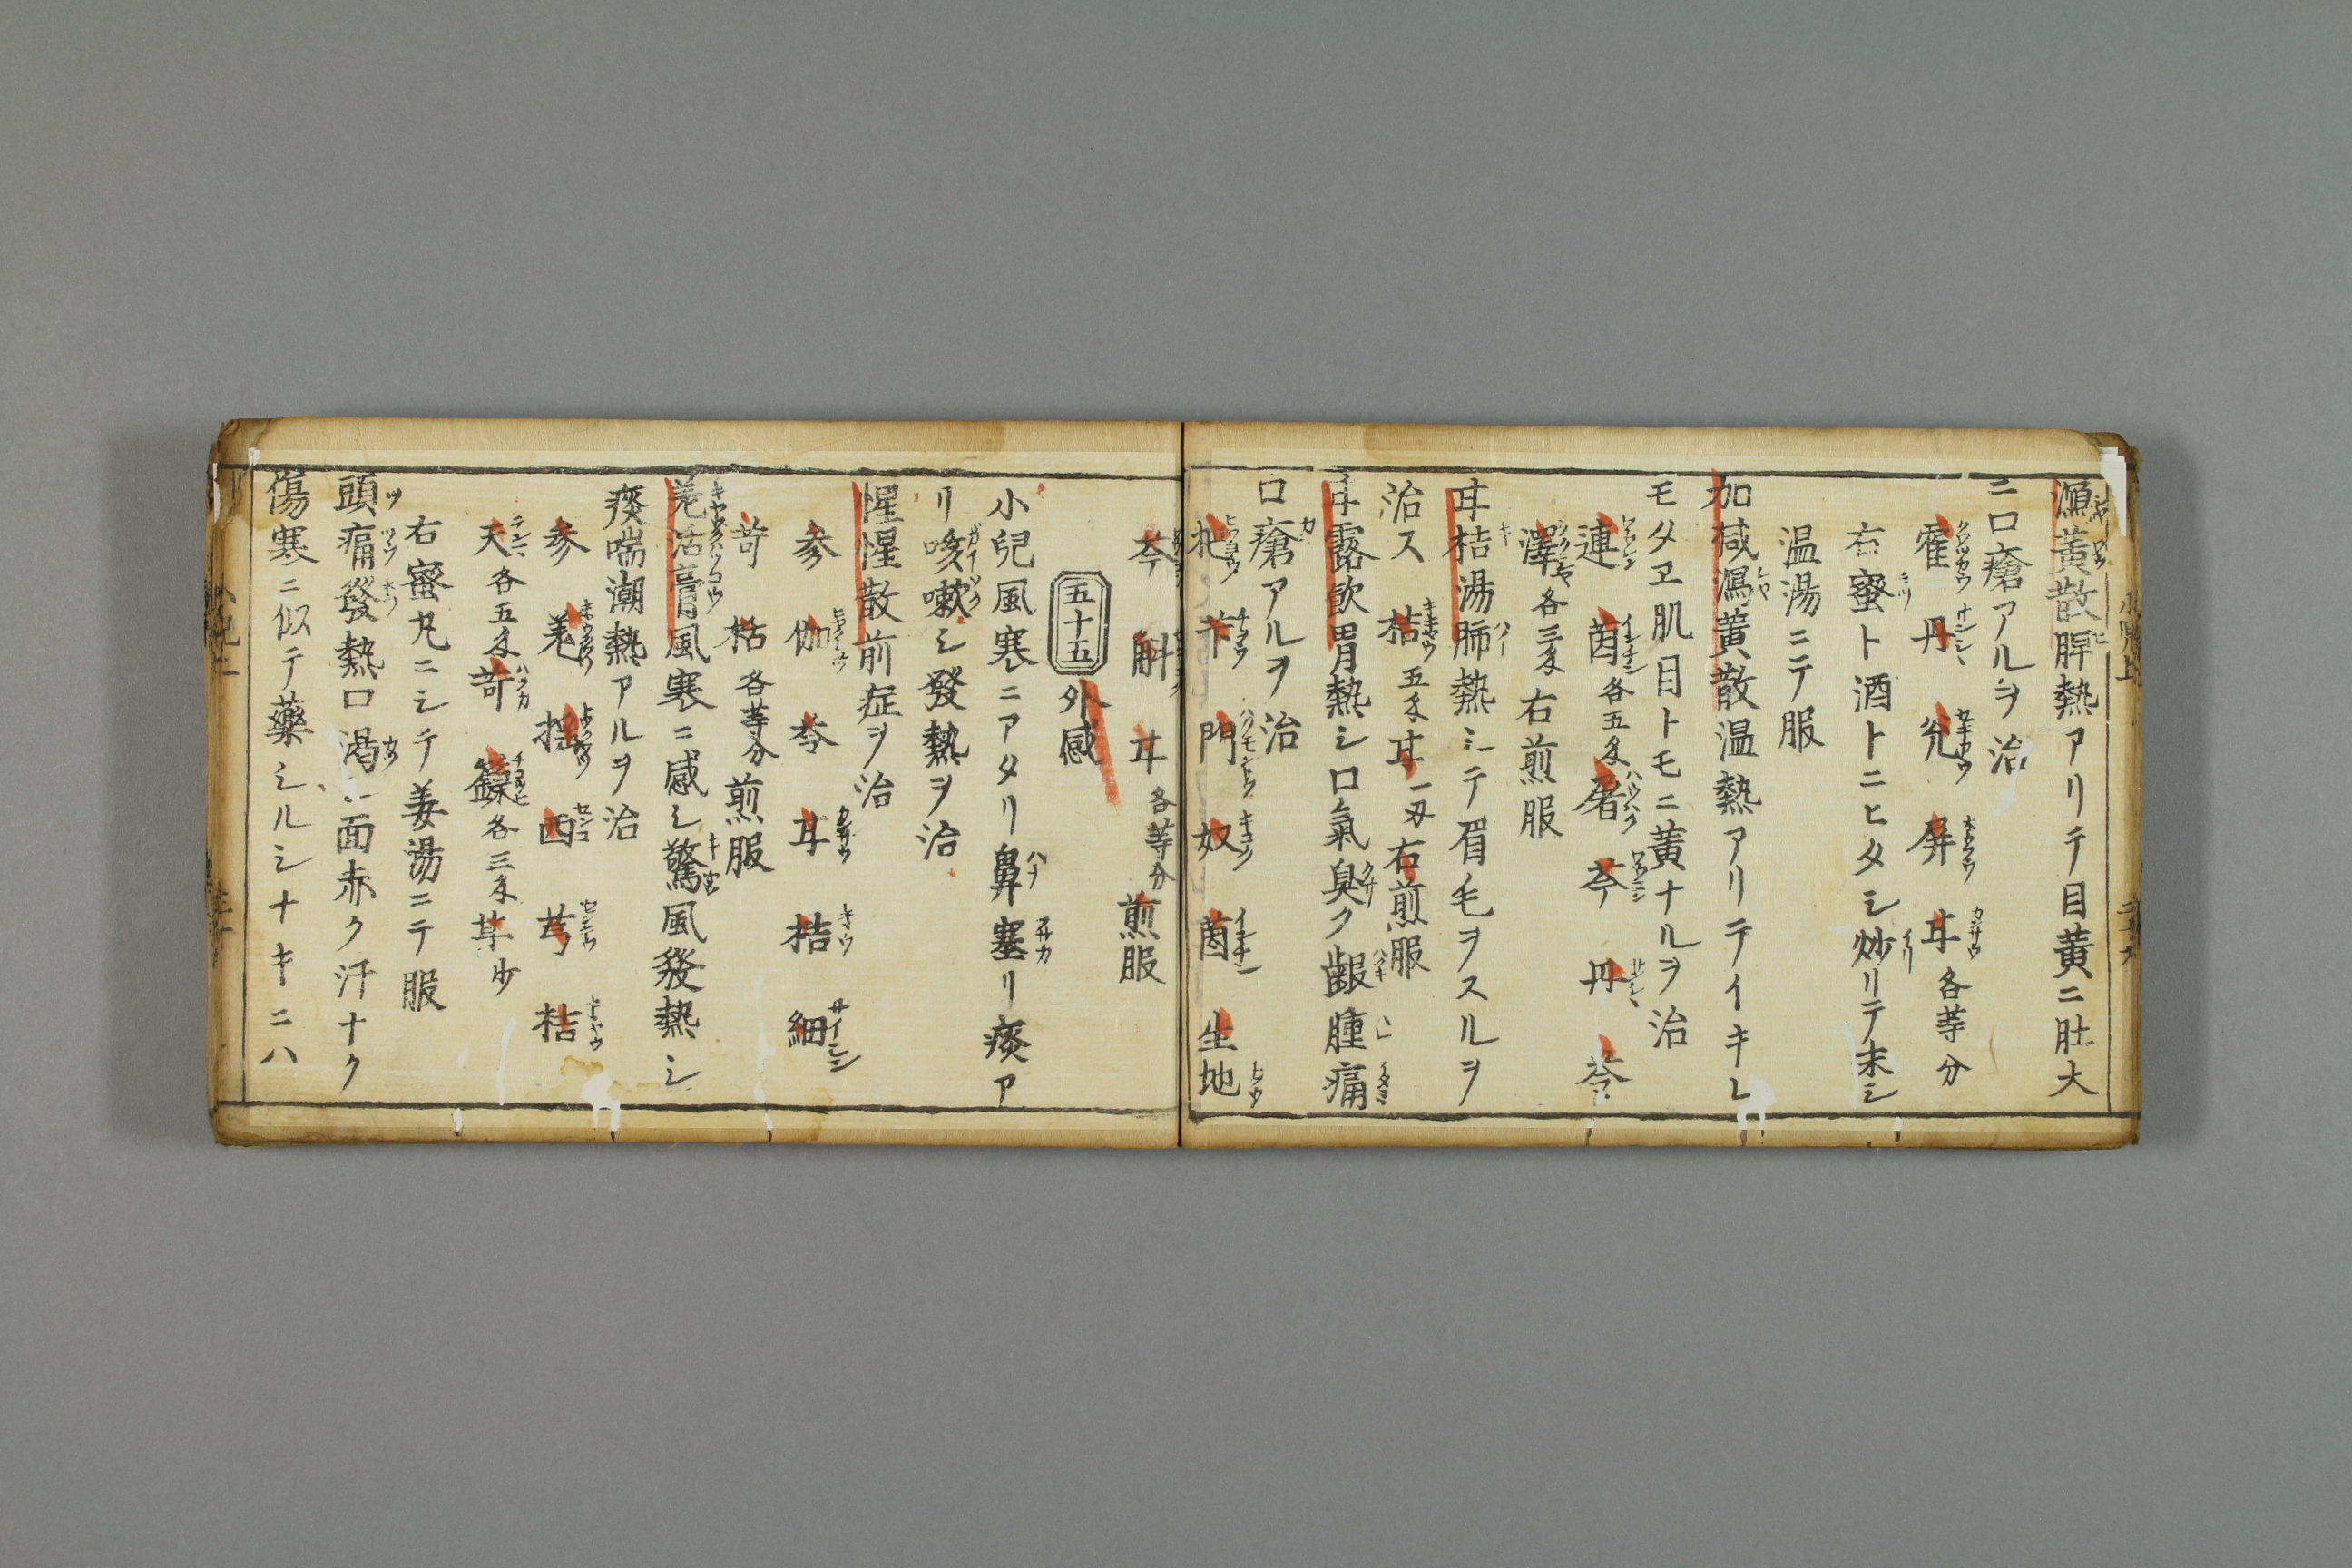 瀉黄散脾熱アリテ目黄ニ肚大
ニ口瘡アルヲ治
藿 丹 兊 屏 甘 各等分
右蜜ト酒トニヒタシ炒リテ末シ
温湯ニテ服
加减瀉黄散温熱アリテイキレ
モタヱ肌目トモニ黄ナルヲ治
連 茵 各五 屠 苓 丹 苓
澤 各三 右煎服
甘桔湯肺熱シテ眉毛ヲスルヲ
治ス 桔 五 甘 一 右煎服
甘露飲胃熱シ口氣臭ク齦腫痛
口瘡アルヲ治
枇 芐 門 奴 茵 生地
芩 斛 甘 各等分 煎服
五十五 外感
小兒風寒ニアタリ鼻塞リ痰ア
リ咳嗽シ發熱ヲ治
惺惺散前症ヲ治
参 伽 苓 甘 桔 細
苛 栝 各等分 煎服
羌活膏風寒ニ感シ驚風發熱シ
痰喘潮熱アルヲ治
参 羗 揺 西 芎 桔
天 各五 苛 各三 甘 少
右蜜丸ニシテ姜湯ニテ服
頭痛發熱口渇 面赤ク汗ナク
傷寒ニ似テ藥シルシナキニハ